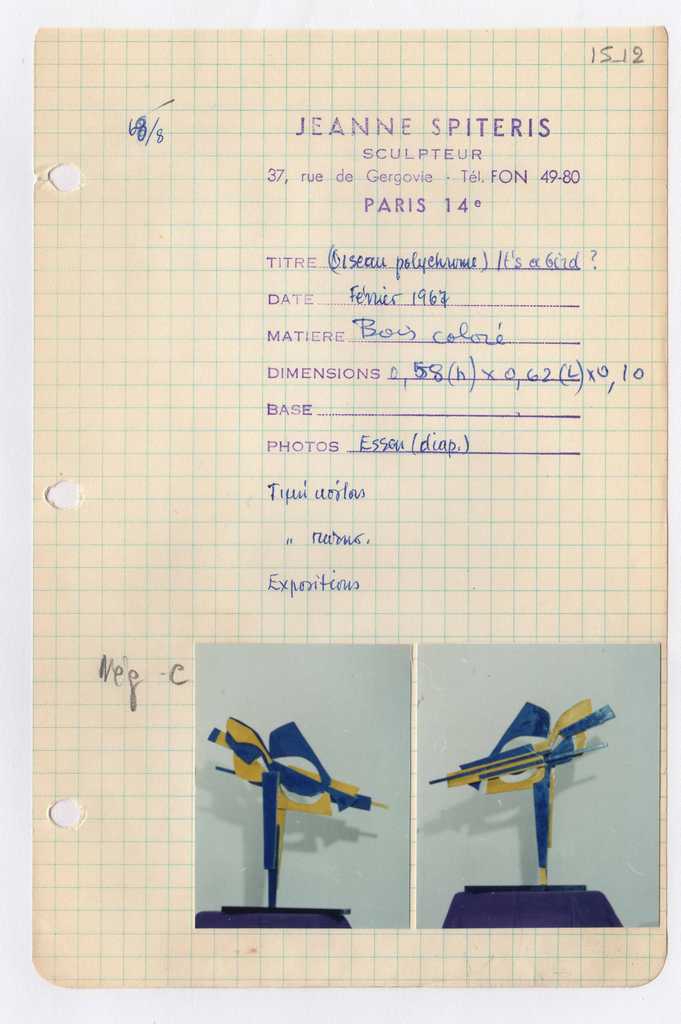 15_12
/8
JEANNE SPITERIS
SCULPTEUR
37, rue de Gergovie - Tél. FON 49-80
PARIS 14e
TITRE (Oiseau polychrome) It's a bird ?
DATE Février 1967
MATIERE Bois coloré
DIMENSIONS 0,58(h) x 0,62(L) x 0,10
BASE
PHOTOS Essen (diap.)
Τιμή
"
Expositions
Nég - C